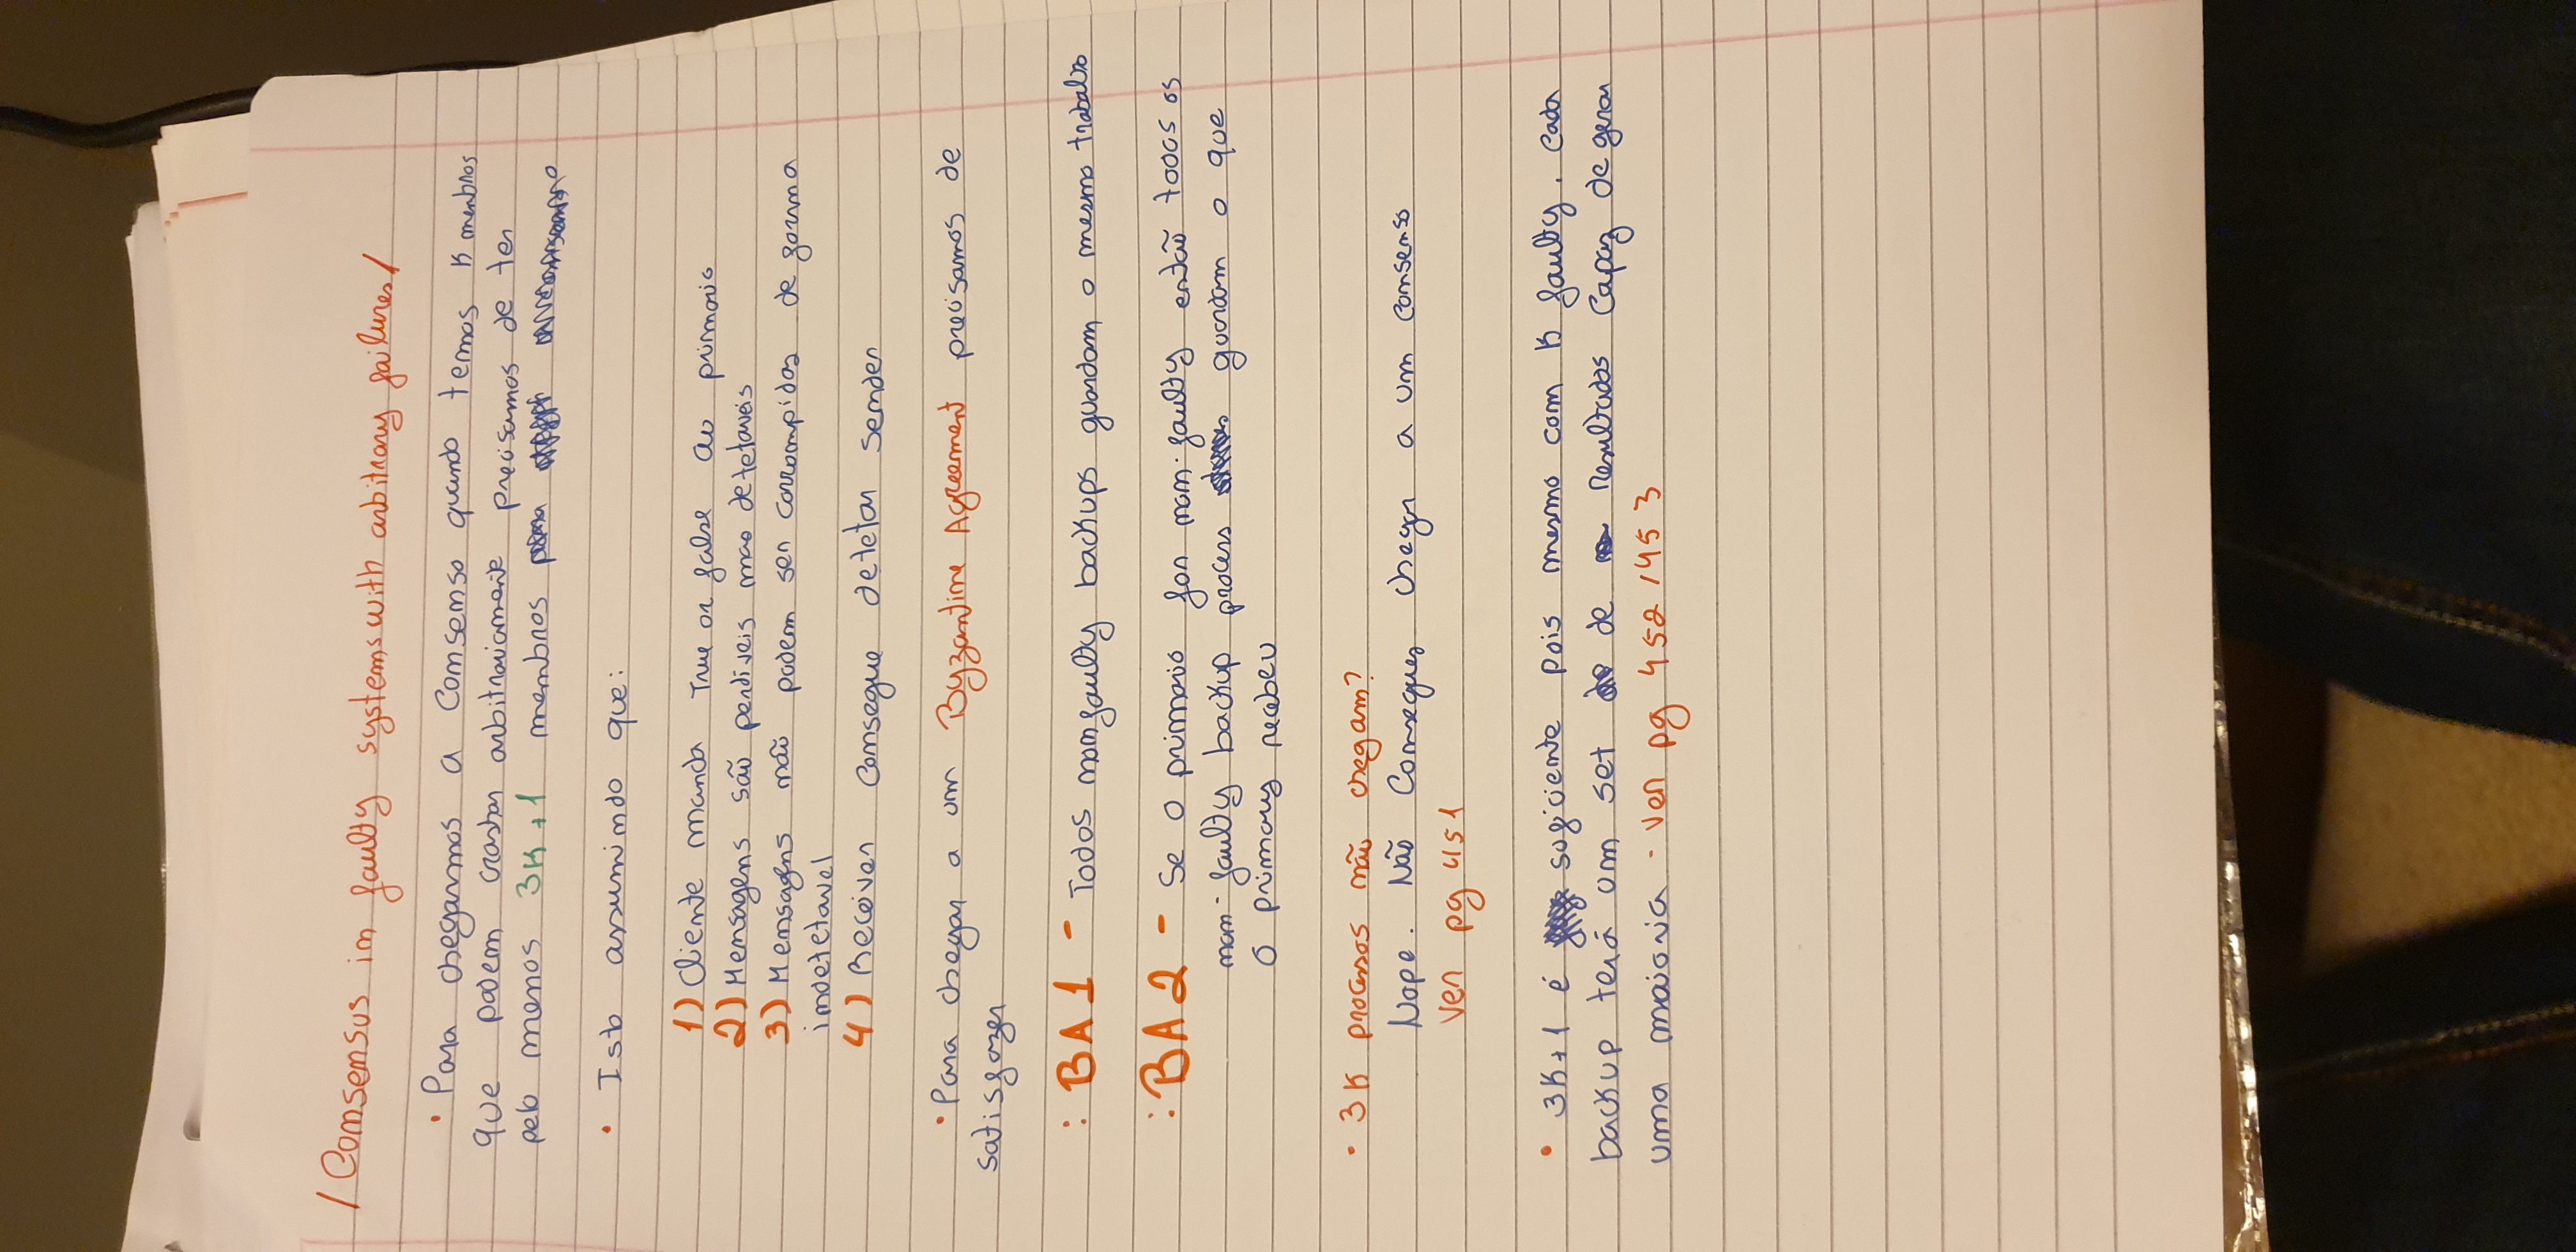 / Consensus in faulty systems with arbitrary failures /
• Para chegarmos a Consenso quando temos K membros
que podem crashar arbitrariamente precisamos de ter
pelo menos 3K+1 membros
• Isto assumindo que:
1) Cliente manda True or false ao primario
2) Mensagens são perdiveis mas detetaveis
3) Mensagens não podem ser corrompidas de forma
indetetavel
4) Receiver consegue detetar sender
• Para chegar a um Byzantine Agreement precisamos de
satisfazer
: BA1 - Todos nonfaulty backups guardam o mesmo trabalho
: BA2 - Se o primario for non-faulty então todos os
non-faulty backup process guardam o que
o primary recebeu
• 3K processos não chegam?
Nope. Não Consegues chegar a um consenso
Ver pg 451
• 3K+1 é suficiente pois mesmo com K faulty. Cada
backup terá um set de resultados capaz de gerar
uma maioria - ver pg 452/453